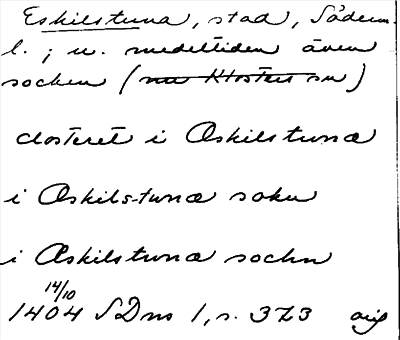 Eskilstuna, stad, Söderm.
l.; u. medeltiden även
socken (nu Klosters sn)
closteret i Æskilstunæ
i Æskilstunæ sokn
i Æskilstunæ sochn
14/10
1404 SDns 1, s. 373 orig